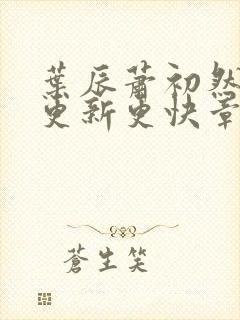 葉辰蕭初然
更新更快章
蒼生笑